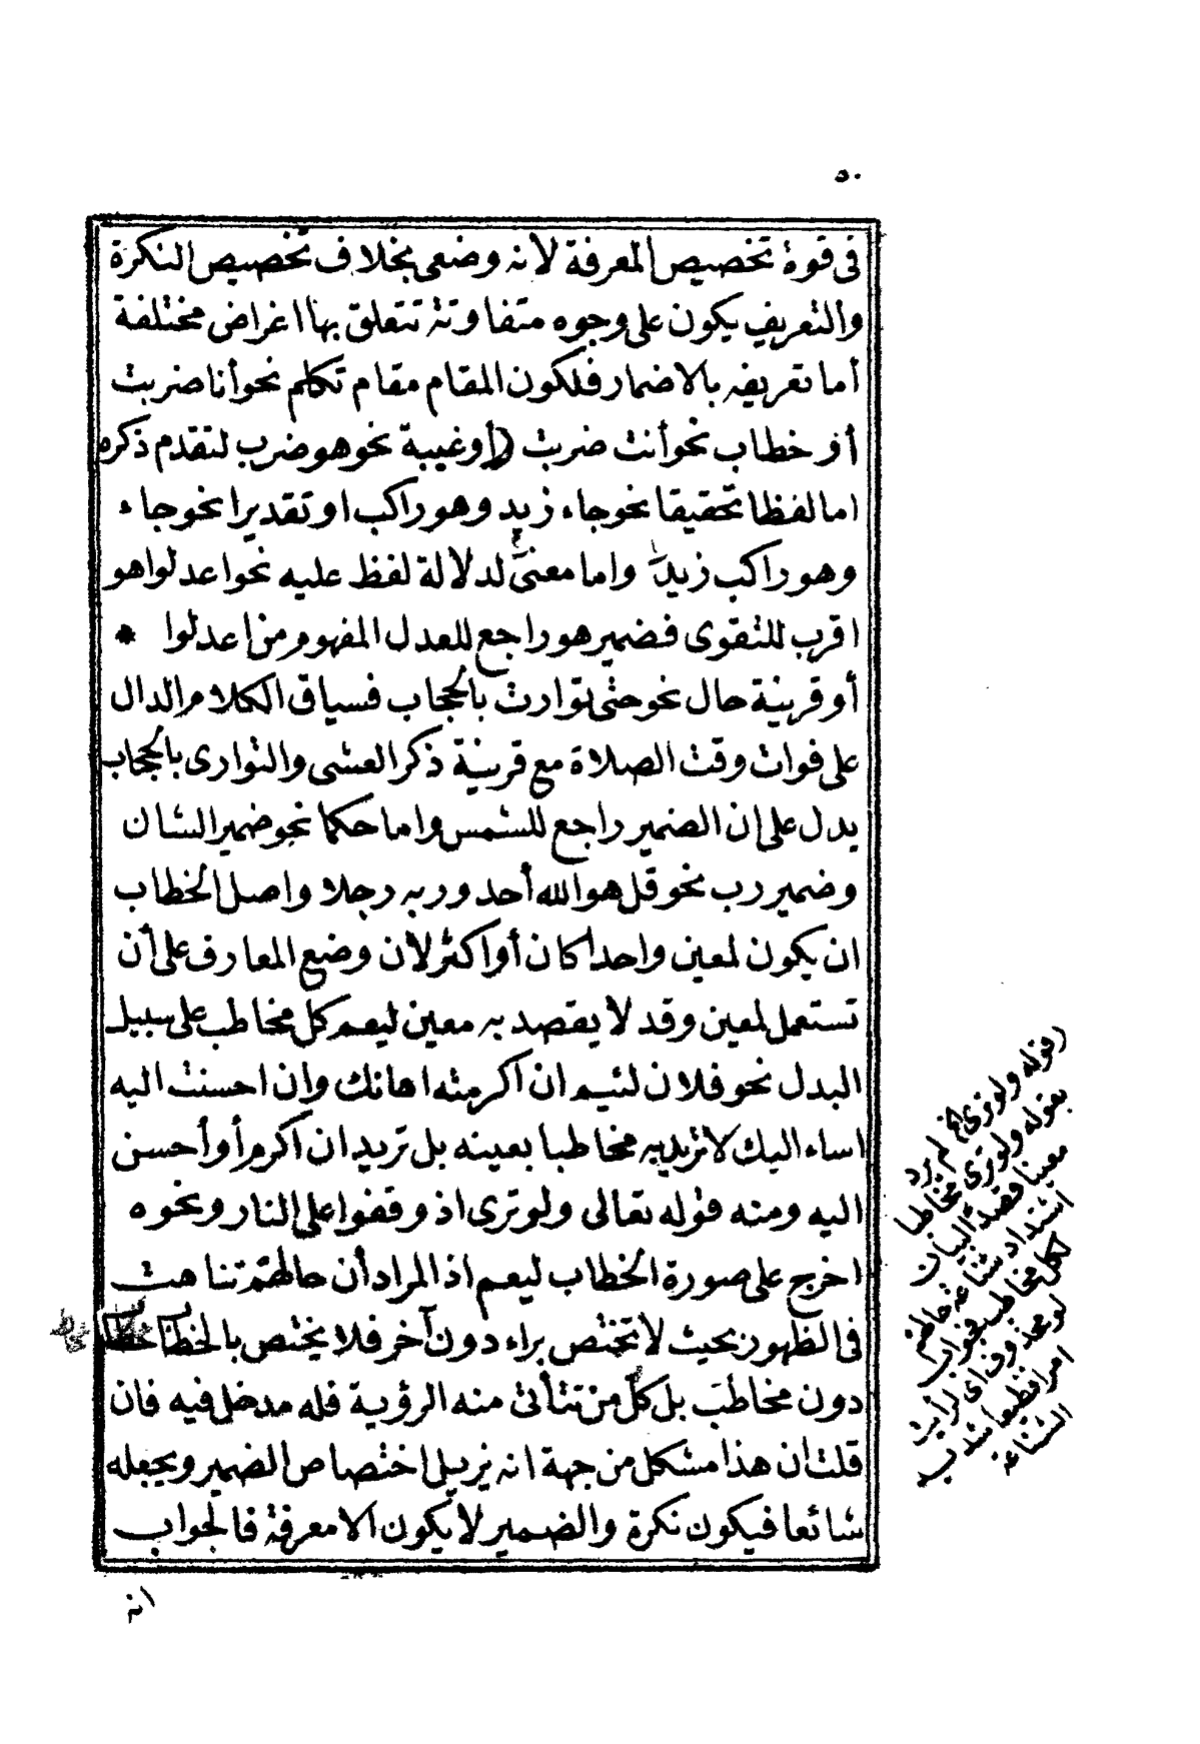 ٥٠
فى قوة تخصيص المعرفة لأنه وضعى بخلاف تخصيص النكرة
والتعريف يكون على وجوه متفاوتة تتعلق بها اغراض مختلفة
أما تعريفه بالاضمار فلكون المقام مقام تكلم نحو أنا ضربت
أو خطاب نحو أنت ضربت (أوغيبة نحو هو ضرب لتقدم ذكره
اما لفظا تحقيقا نحو جاء زيد وهو راكب او تقديرا نحو جاء
وهو راكب زيد واما معنى لدلالة لفظ عليه نحو اعدلوا هو
اقرب للتقوى فضمير هو راجع للعدل المفهوم من اعدلوا *
أو قرينة حال نحو حتى توارت بالحجاب فسياق الكلام الدال
على فوات وقت الصلاة مع قرينة ذكر العشى والتوارى بالحجاب
يدل على ان الضمير راجع للشمس واما حكما نحو ضمير الشان
وضمير رب نحو قل هو الله أحد وربه رجلا واصل الخطاب
ان يكون لمعين واحدا كان أو اكثر لأن وضع المعارف على أن
تستعمل لمعين وقد لا يقصد به معين ليعم كل مخاطب على سبيل
البدل نحو فلان لئيم ان اكرمته اهانك وان احسنت اليه
اساء اليك لا تريد به مخاطبا بعينه بل تريد ان اكرم أو أحسن
اليه ومنه قوله تعالى ولو ترى اذ وقفوا على النار ونحوه
اخرج على صورة الخطاب ليعم اذ المراد أن حالهم تناهت
فى الظهور بحيث لا تختص براء دون آخر فلا يختص بالخطاب
دون مخاطب بل كل من تتأتى منه الرؤية فله مدخل فيه فان
قلت ان هذا مشكل من جهة انه يزيل اختصاص الضمير ويجعله
شائعا فيكون نكرة والضمير لا يكون الا معرفة فالجواب
انه
(قوله ولو ترى الخ لم يرد
بقوله ولو ترى مخاطبا
معينا قصدا لبيان
اشتداد شناعة حالهم
لكل مخاطب فجواب
لو محذوف اى لرأيت
امرا فظيعا شديد
الشناعة